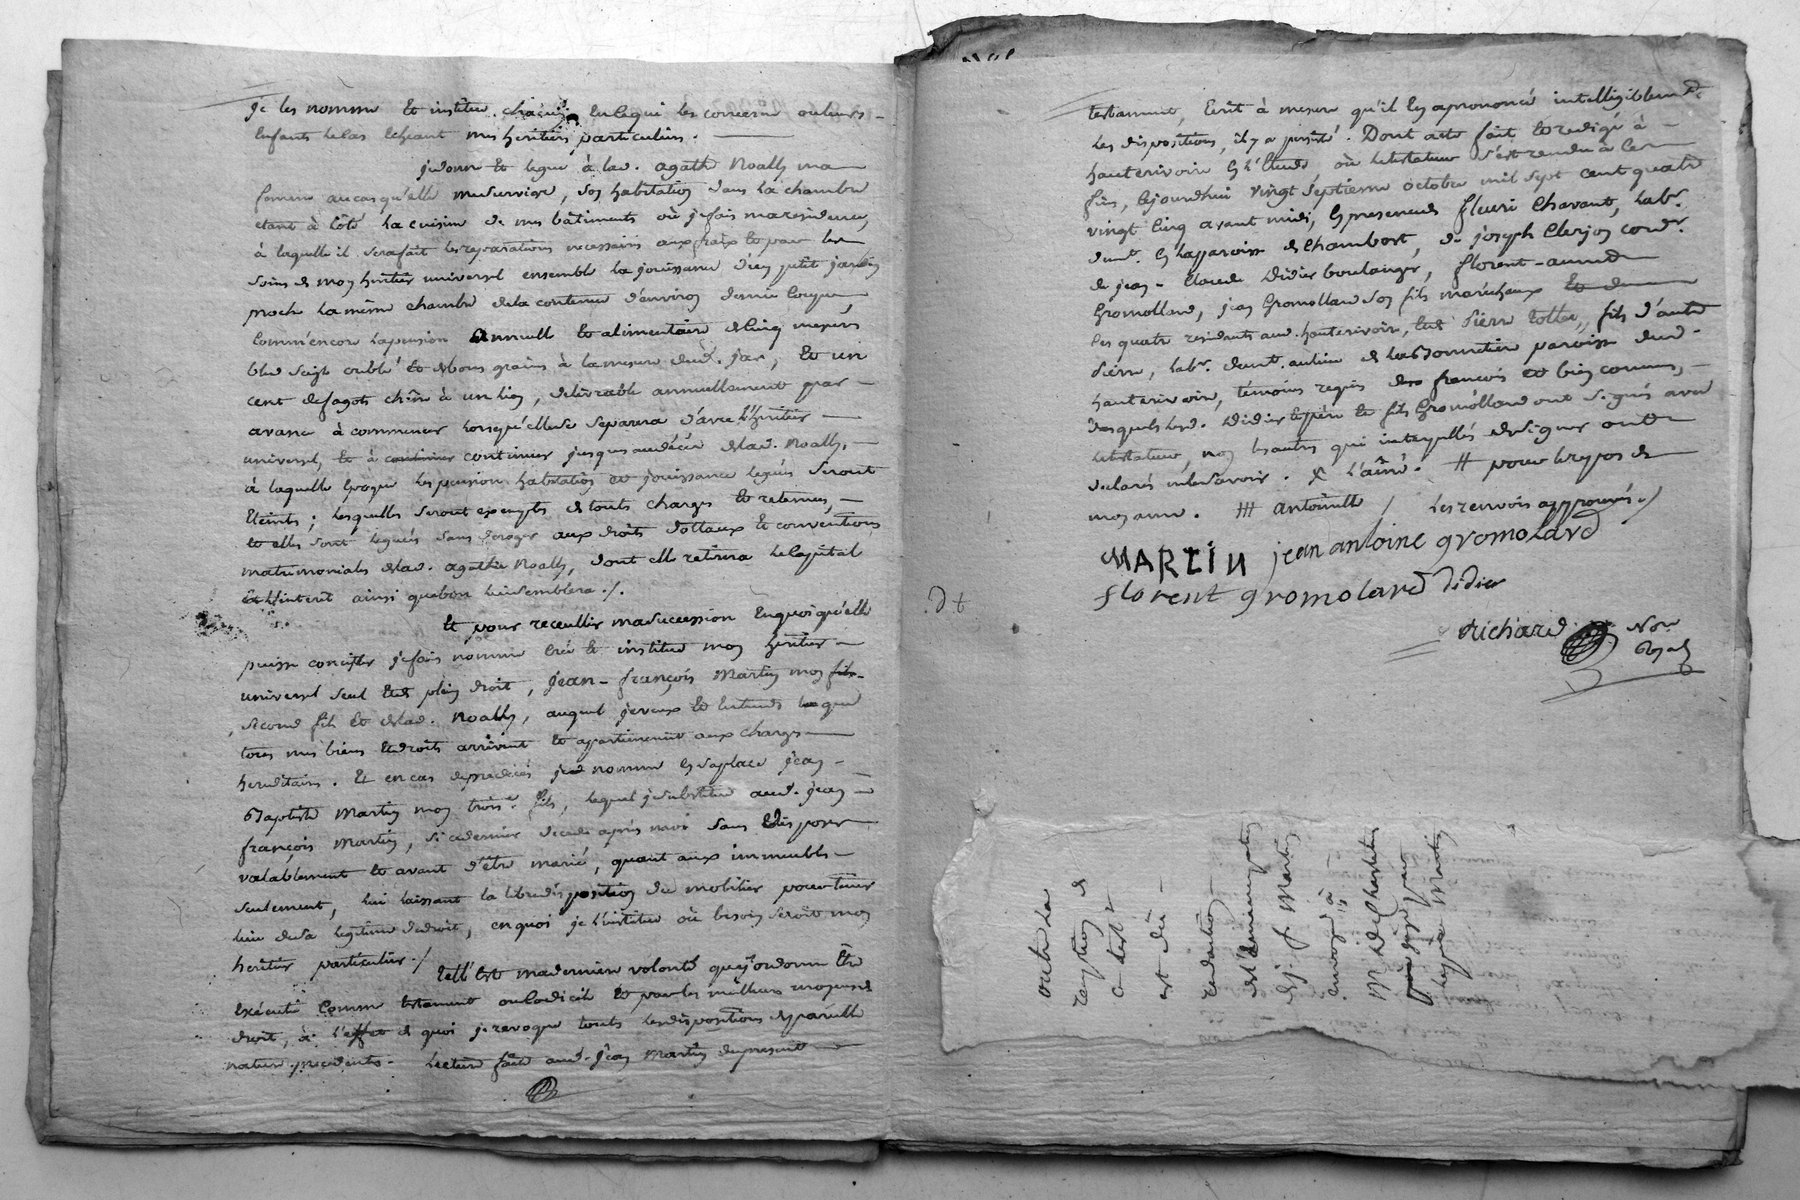 je les nomme et institue chacun en ce qui les concerne ou leurs
enfants le cas echeant mes heritiers particuliers.
je donne et legue à lad. agathe Noally ma
femme au cas qu'elle me survive, son habitation dans la chambre
etant à côté la cuisine de mes bâtiments où je fais ma residence,
à laquelle il sera fait les reparations necessaires aux fraix et par les
soins de mon heritier universel ensemble la jouissance d'un petit jardin
proche la même chambre de la contenue d'environ demie coupe,
comm'encore la pension annuelle et alimentaire de cinq mesures
bled seigle criblé et de bons grains à la mesure dud. jar, et un
cent de fagots chêne à un lien, delivrable annuellement par
avance à commencer lorsqu'elle se separera d'avec l'heritier
universel, et à continuer continuer jusques au décès de lad. Noally,
à laquelle epoque les pension habitation et jouissance legués seront
eteints; lesquelles seront exempts de touts charges et retenues,
et elles sont leguées sans deroger aux droits dottaux et conventions
matrimoniales de lad. agathe Noally, dont elle retirera le capital
et l'interit ainsi que bon lui semblera ./.
Et pour receuillir ma succession en quoi qu'elle
puisse concister je fais nomme créé et institue mon heritier
universel seul et de plein droit, jean-françois Martin mon fils
second fils et de lad. Noally, auquel je veux et entends que
tous mes biens et droits arrivent et appartiennent aux charges
hereditaires. Et en cas de predécés je nomme en sa place jean
Baptiste Martin mon trois.e fils, lequel je substitue aud. jean
françois Martin, si ce dernier decede après moi sans disposer
valablement et avant d'être marié, quant aux immeubles
seulement, lui laissant la libre disposition du mobilier pour tenir
lieu de sa legitime de droit, en quoi je l'institue où besoin seroit mon
heritier particulier ./
tell'est ma derniere volonté que j'ordonne être
exécuté comme testament ou codicile et par les meilleurs moyens de
droit, à l'effet de quoi je revoque touts les dispositions de pareille
nature precedentes. Lecture faite aud. jean Martin du present
testament, ecrit à mesure qu'il en a prononcé intelligiblement
les dispositions, il y a persisté. Dont acte fait et redigé à
hauterivoire en l'etude, où le testateur s'est rendu à ces
fins, cejourdhui vingt septieme octobre mil sept cent quatre
vingt cinq avant midi, en presence de fleuri Chavant, lab.r
dem.t en la paroisse de Chambost, de joseph Clerjon cord.r
de jean-Claude Didier boulanger, florent-aimé
Gromollard, jean Gromollard son fils marechaux
les quatre residants aud. hauterivoire, et de Pierre Cotter, fils d'autre
Pierre, lab.r dem.t au lieu de la Bonnetiere paroisse dud.
hauterivoire, témoins requis français et bien connus,
desquels led. Didier les père et fils Gromollard ont signés avec
le testateur, non les autres qui interpellés de signer ont
declarés ne le savoir. X l'aîné. # pour le repos de
mon ame. ## antoinette / les renvois approuvés ./
MARTIN jean antoine gromolard
florent gromolard didier
Richard Not.re
Royal
outre la
reception de
ce test.t
est dû
redaction
de l'emancipation
de j. f. Martin
envoyé à
M. De
par
Martin